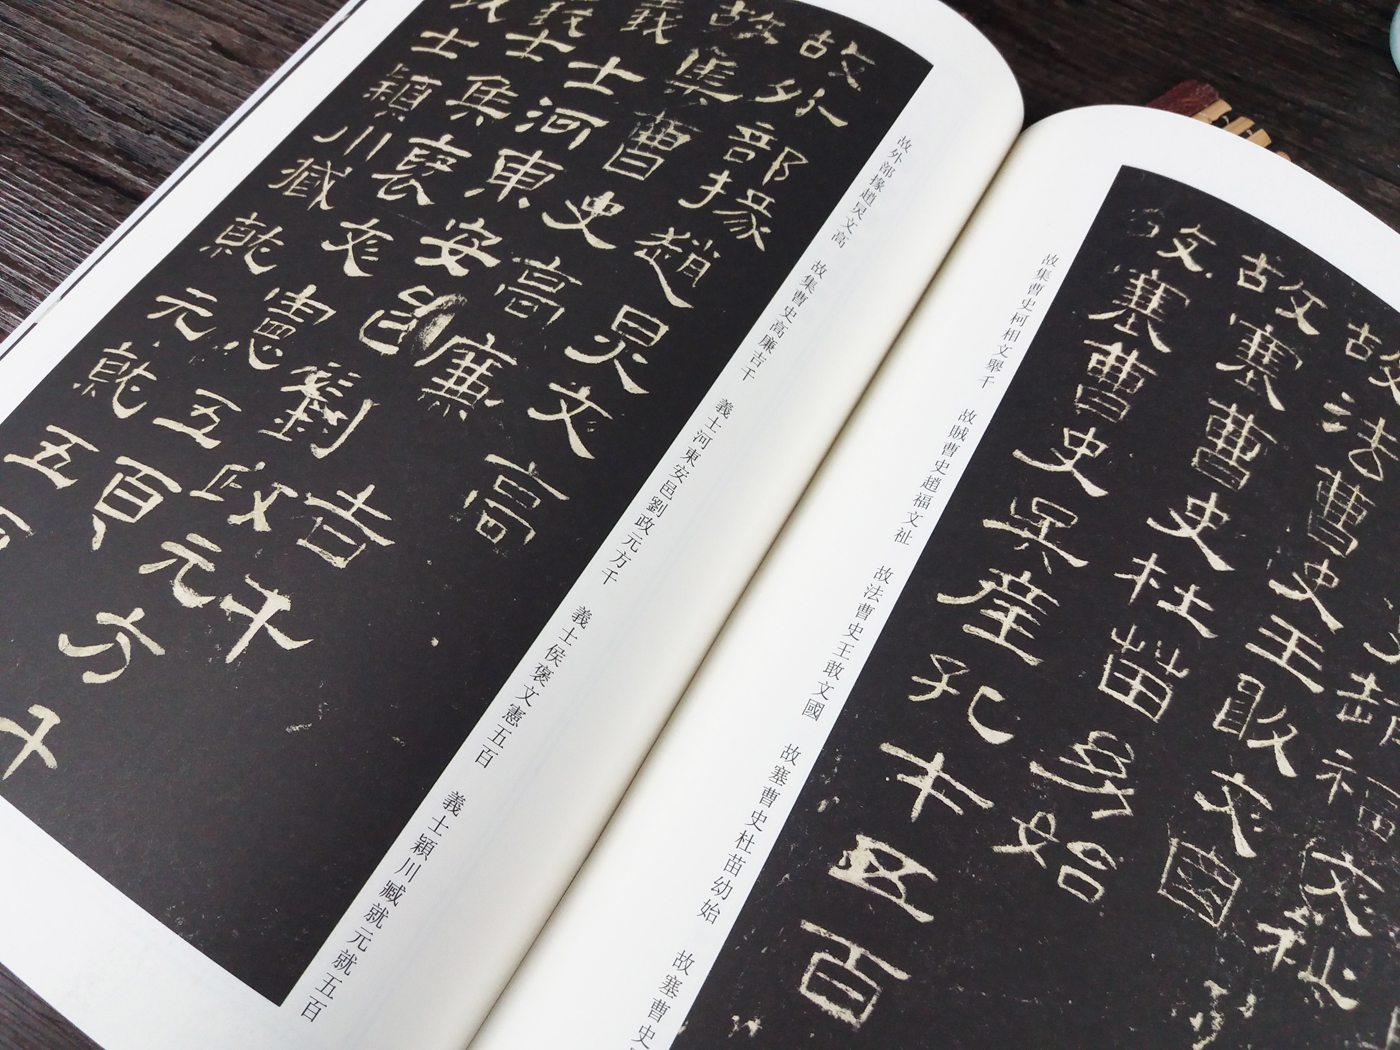 趙福文祉
故法曹史王敢文國
故塞曹史杜苗幼始
故塞曹史吳產孔才五百
故集曹史柯相文舉千　故賊曹史趙福文祉　故法曹史王敢文國　故塞曹史杜苗幼始　故塞曹史
故外部掾趙炅文高
故集曹史高廉吉千
義士河東安邑劉政元方千
義士侯褒文憲五百
義士穎川臧就元就五百
故外部掾趙炅文高　故集曹史高廉吉千　義士河東安邑劉政元方千　義士侯褒文憲五百　義士穎川臧就元就五百